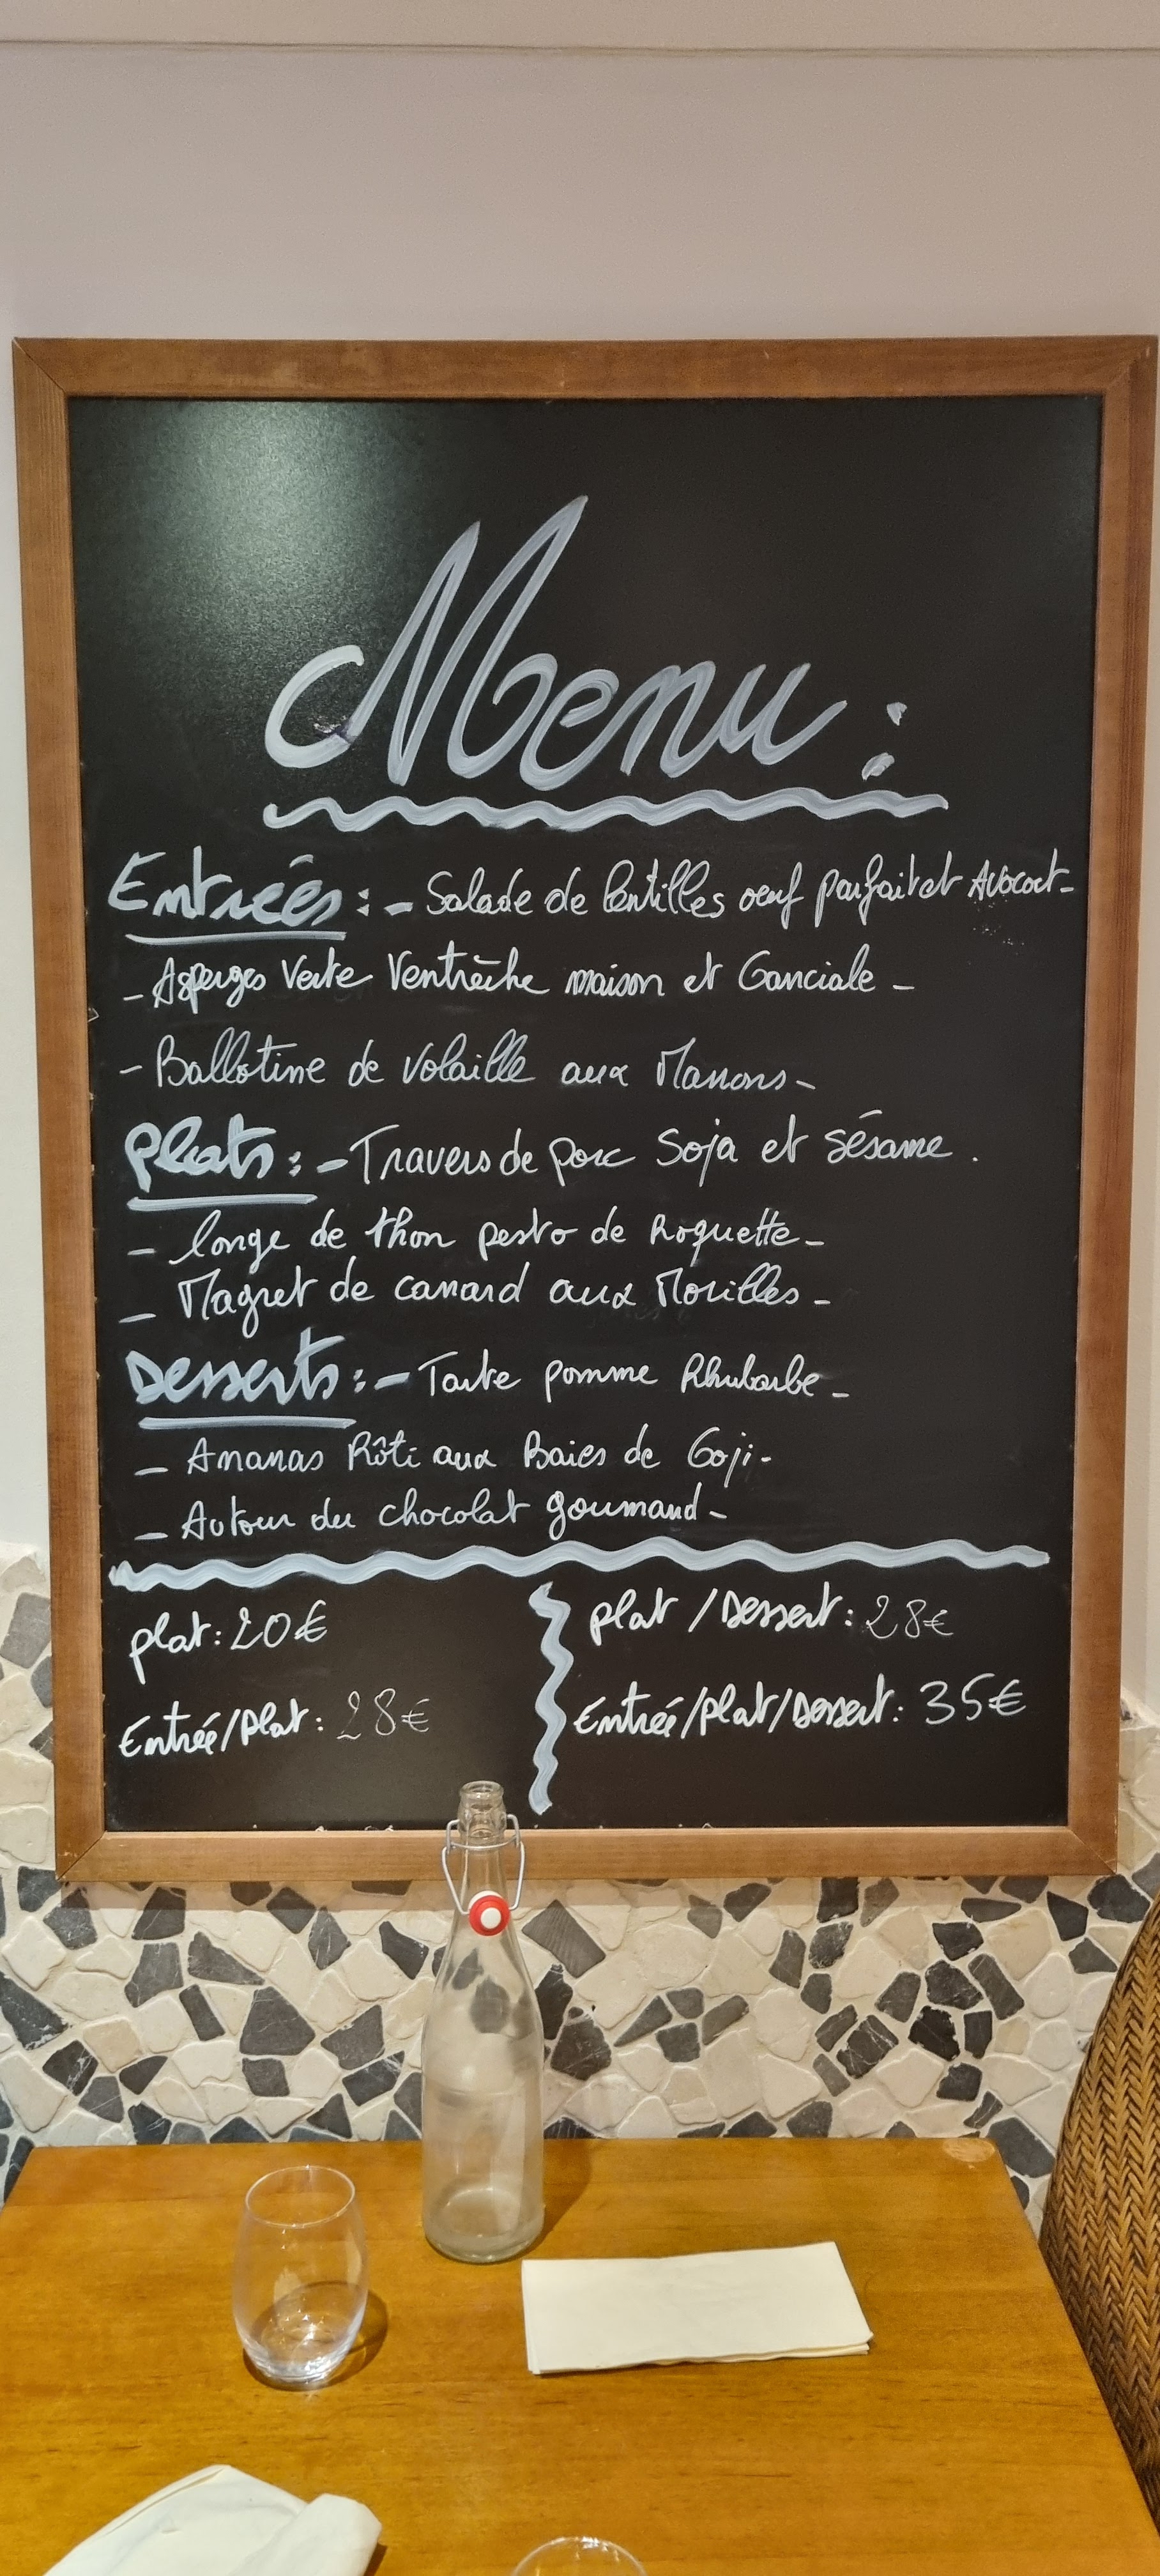 Menu :
Entrées : - Salade de lentilles oeuf parfait et Avocat -
- Asperges Verte Ventrèche maison et Ganciale -
- Ballotine de Volaille aux Marrons -
plats : - Travers de porc Soja et sésame .
- longe de thon pesto de Roquette -
- Magret de canard aux Morilles -
Desserts : - Tarte pomme Rhubarbe -
- Ananas Rôti aux Baies de Goji -
- Autour du chocolat gourmand -
plat : 20€
Entrée/plat : 28€
plat / Dessert : 28€
Entrée/plat/Dessert : 35€